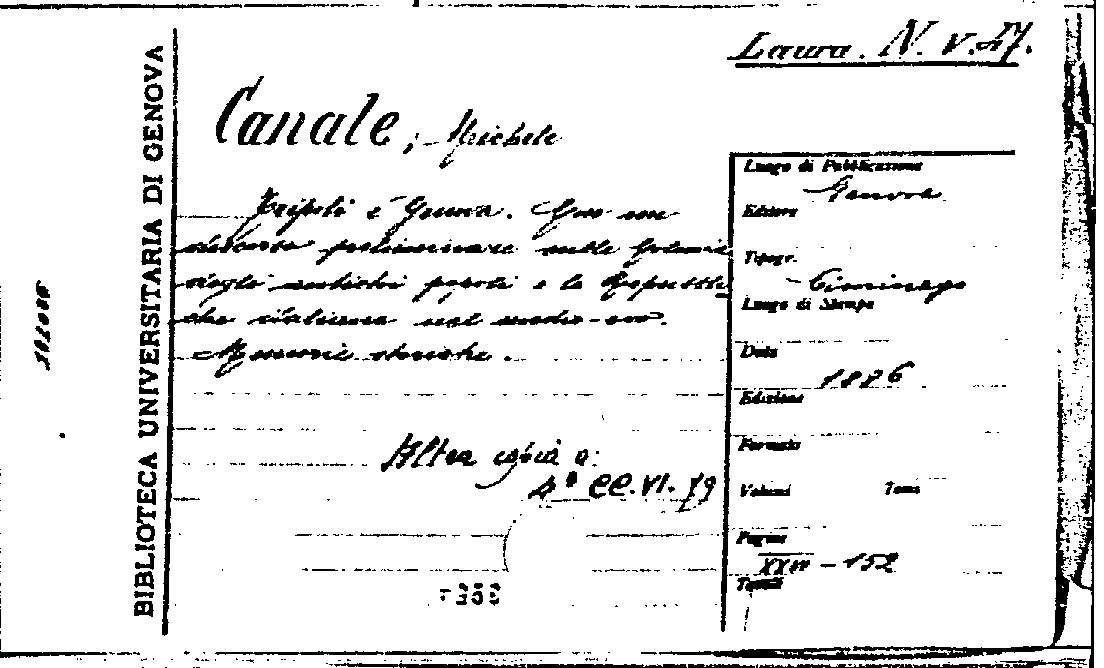 Laura. N. V. 27.
BIBLIOTECA UNIVERSITARIA DI GENOVA
Canale, Michele
Tripoli e Genova. Con un
discorso preliminare sulle Colonie
degli antichi popoli e le Repubbli
che italiane nel medio-evo.
Memorie storiche.
Altra copia a:
4° CC. VI. 79
Luogo di Pubblicazione
Genova
Editore
Tipogr.
Ciminago
Luogo di Stampa
Data
1886
Edizione
Formato
Volumi Tomi
Pagine
XXIV - 152
Tavole